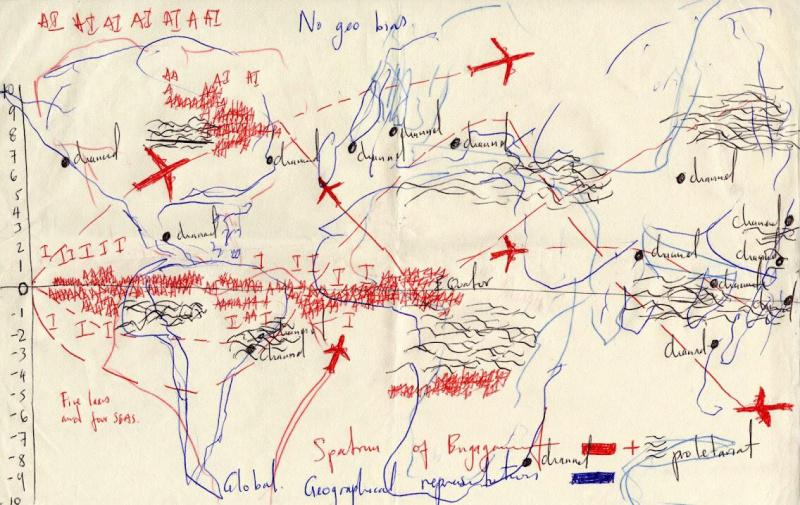 AI AI AI AI AI A AI
No geo bias.
AA AI AI
A
10
9
8
7
6
5
4
3
2
1
0
-1
-2
-3
-4
-5
-6
-7
-8
-9
-10
channel
channel
channel
channel
channel
channel
channel
channel
channel
channel
channel
channel
channel
channel
I I I I I
I I I I I
I I I
I I AA I I
Equator
Five laws
and four SEAS.
Spectrum of Engagement + proletariat
channel
Global. Geographical representations